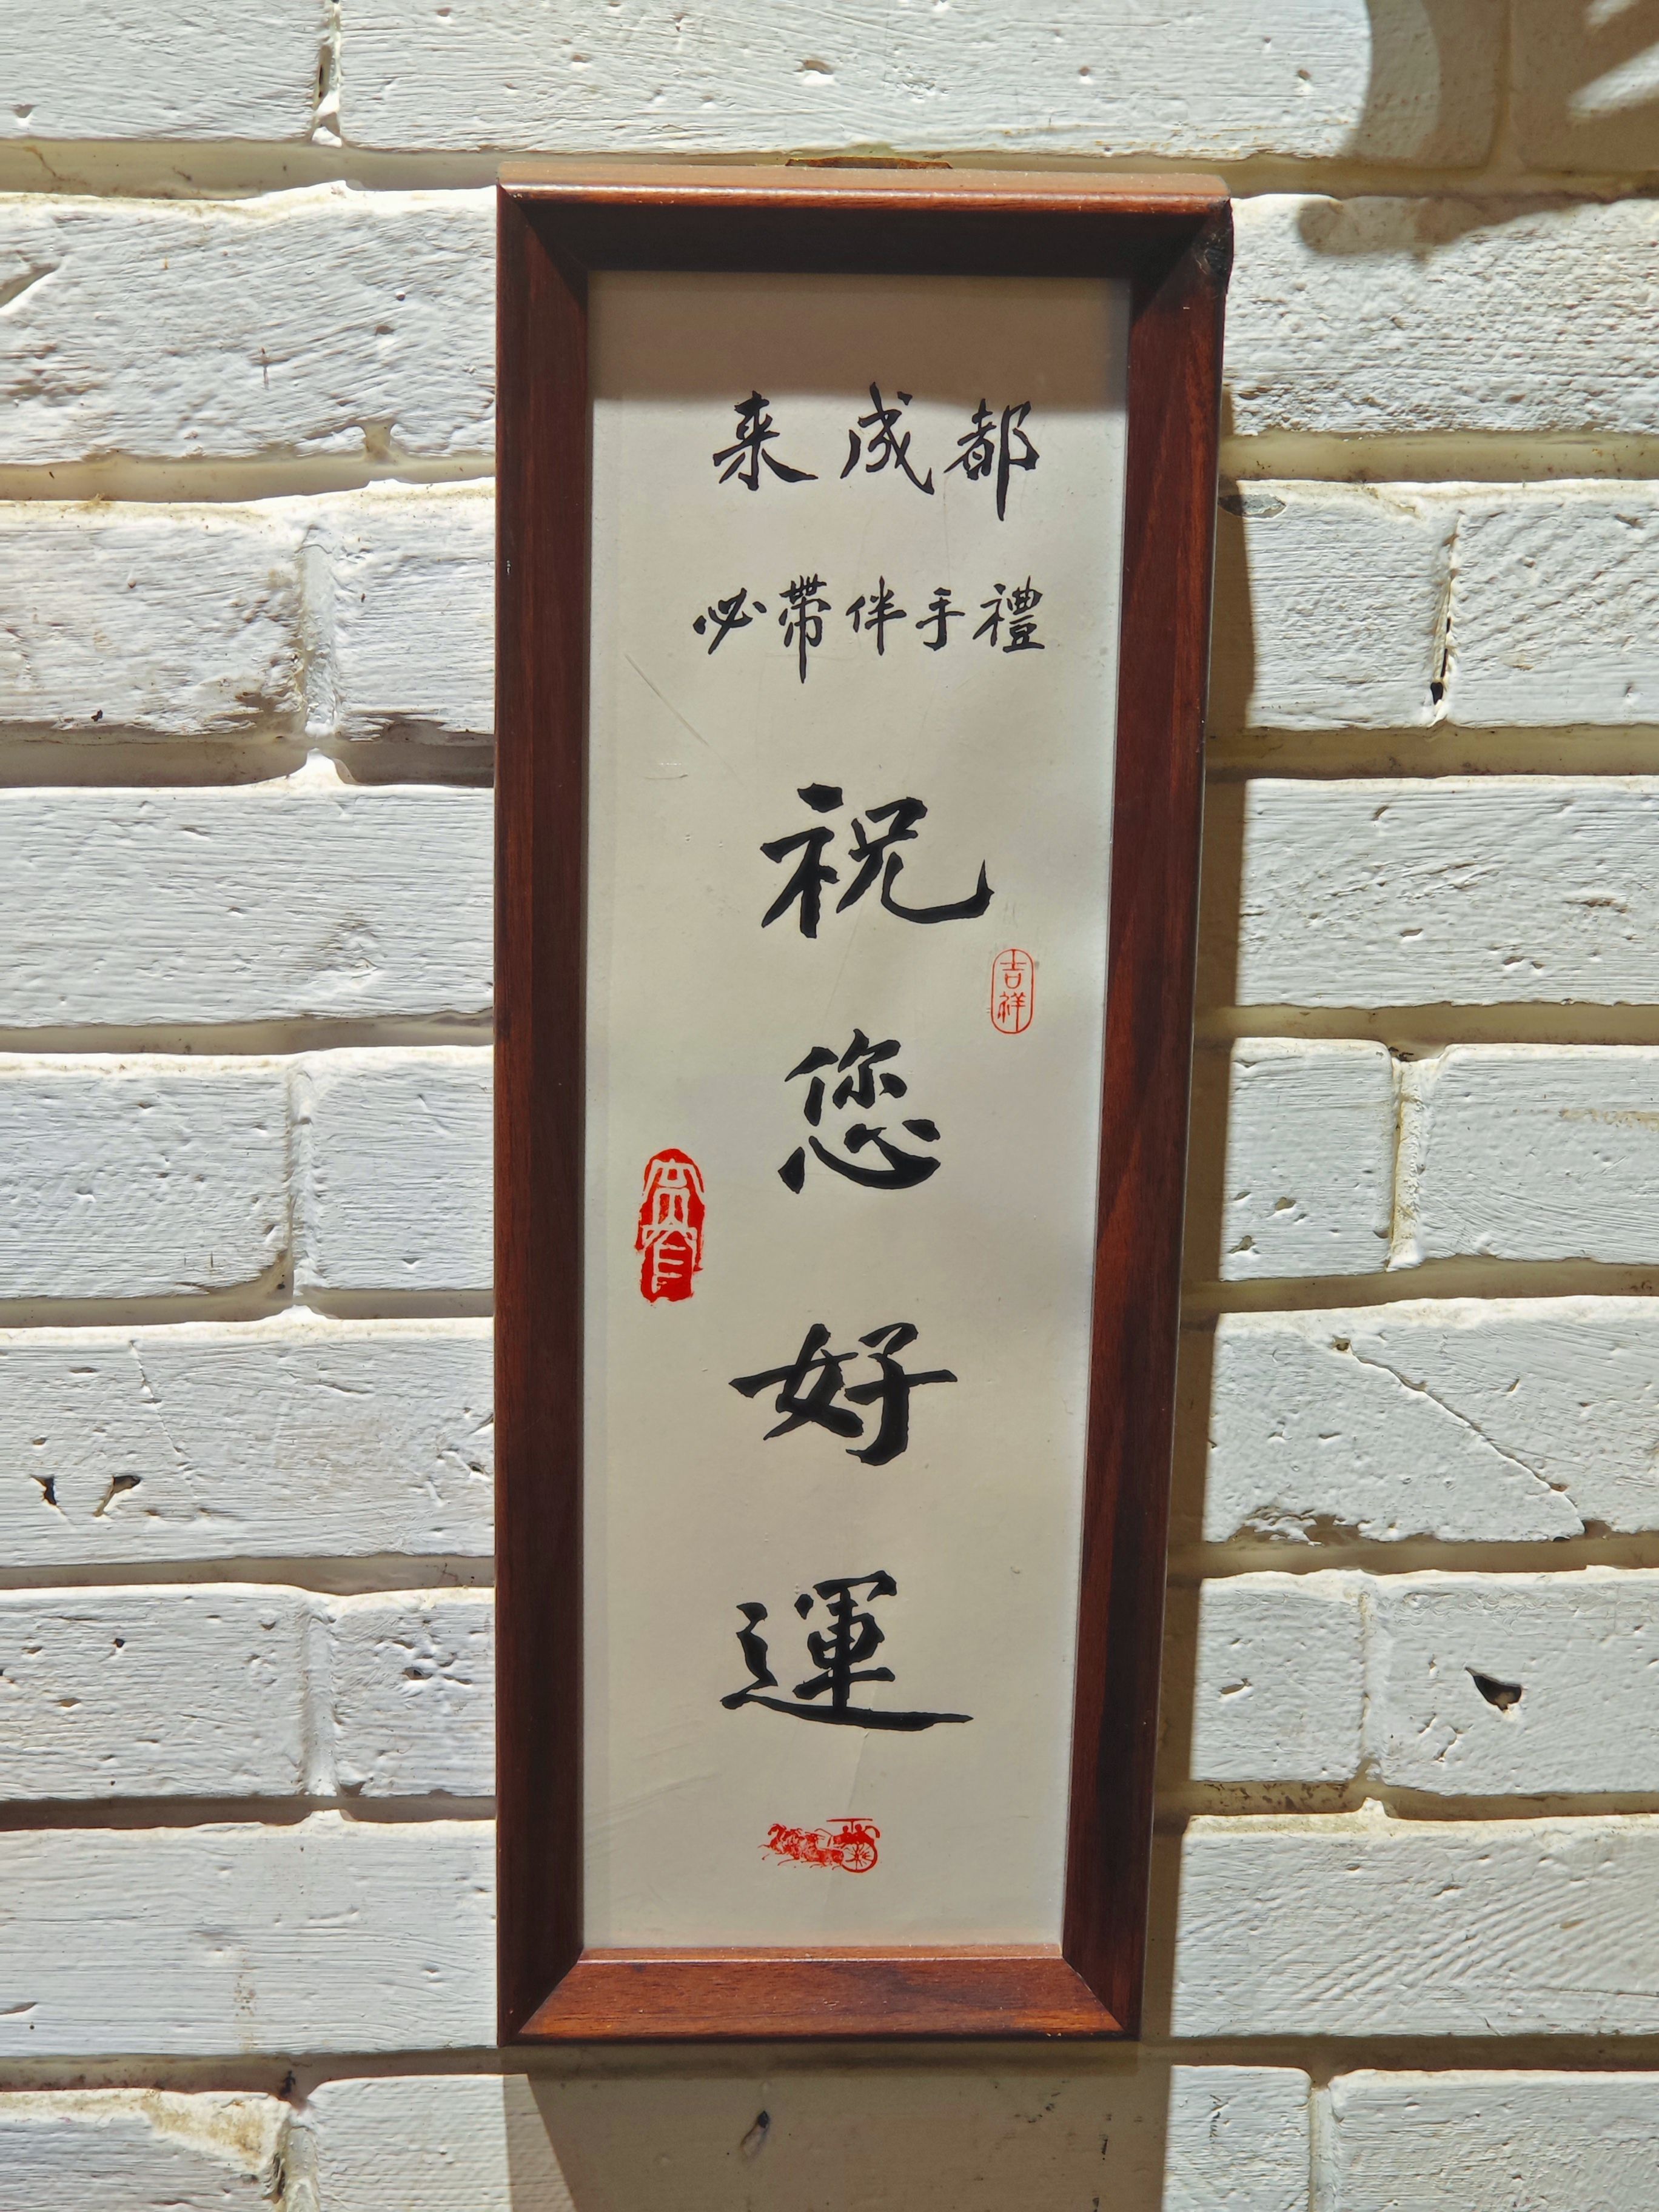 来成都
必帶伴手禮
祝
您
好
運
吉祥